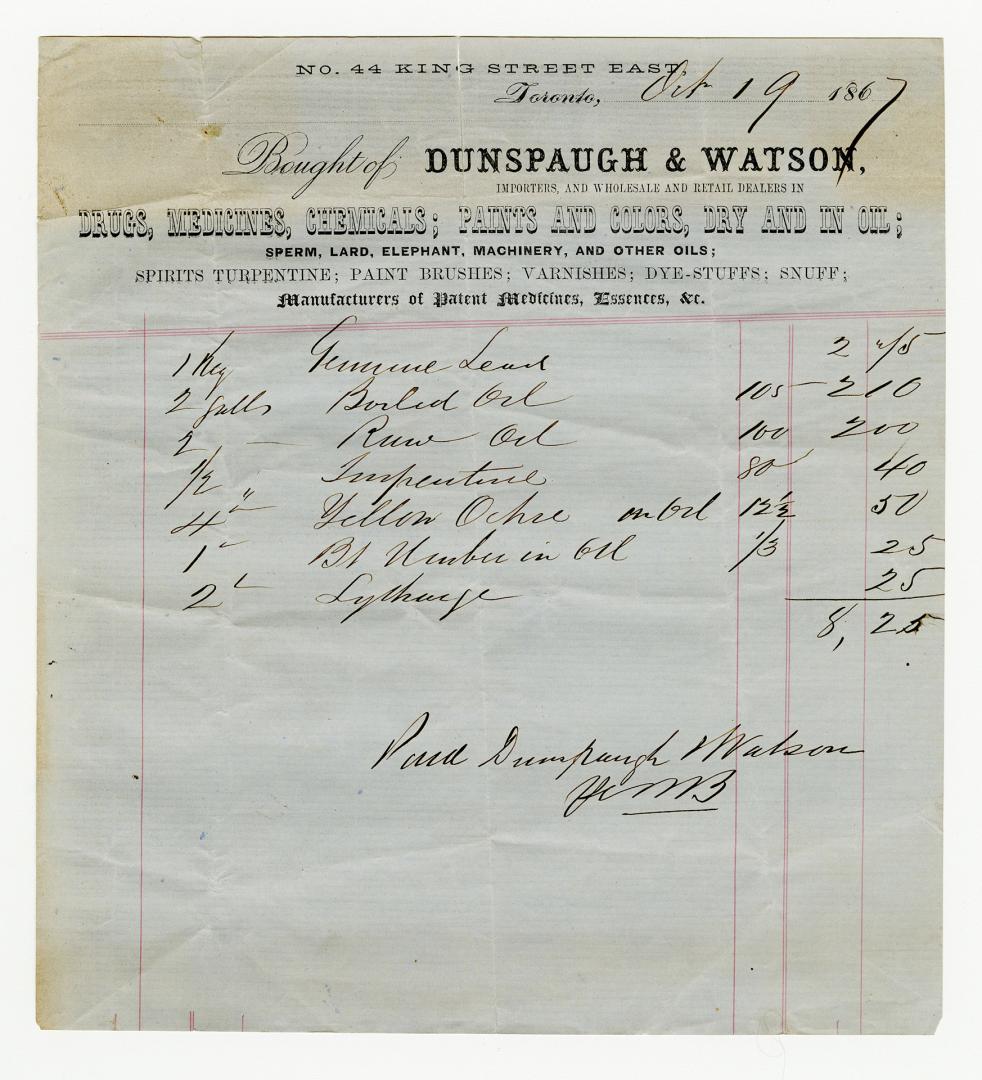 NO. 44 KING STREET EAST,
Toronto, Oct 19 1867
Bought of DUNSPAUGH & WATSON,
IMPORTERS, AND WHOLESALE AND RETAIL DEALERS IN
DRUGS, MEDICINES, CHEMICALS; PAINTS AND COLORS, DRY AND IN OIL;
SPERM, LARD, ELEPHANT, MACHINERY, AND OTHER OILS;
SPIRITS TURPENTINE; PAINT BRUSHES; VARNISHES; DYE-STUFFS; SNUFF;
Manufacturers of Patent Medicines, Essences, &c.
1 Keg Genuine Lead 2 75
2 galls Boiled Oil 105 2 10
2 " Raw Oil 100 2 00
1/2 " Turpentine 80 40
4 " Yellow Ochre in Oil 12½ 50
1 " Bt Umber in Oil 1/3 25
2 " Lytharge 25
8, 25
Paid Dunspaugh & Watson